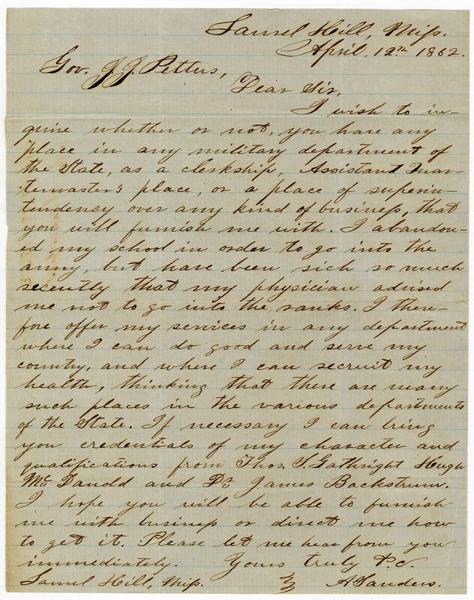 Laurel Hill, Miss.
April, 12th 1862.
Gov. J. J. Pettus,
Dear Sir,
I wish to in-
quire whether or not, you have any
place in any military department of
the State, as a clerkship, Assistant Quar-
termaster's place, or a place of superin-
tendency over any kind of business, that
you will furnish me with. I abandon-
ed my school in order to go into the
army, but have been sick so much
recently that my physician advised
me not to go into the ranks. I there-
fore offer my services in any department
where I can do good and serve my
country, and where I can recruit my
health, thinking that there are many
such places in the various departments
of the State. If necessary I can bring
you credentials of my character and
qualifications from Thos. S. Gathright Hugh
Mc Danold and Dr. James Backstrum.
I hope you will be able to furnish
me with business or direct me how
to get it. Please let me hear from you
immediately. Yours truly &c.
Laurel Hill, Miss. A Sanders.